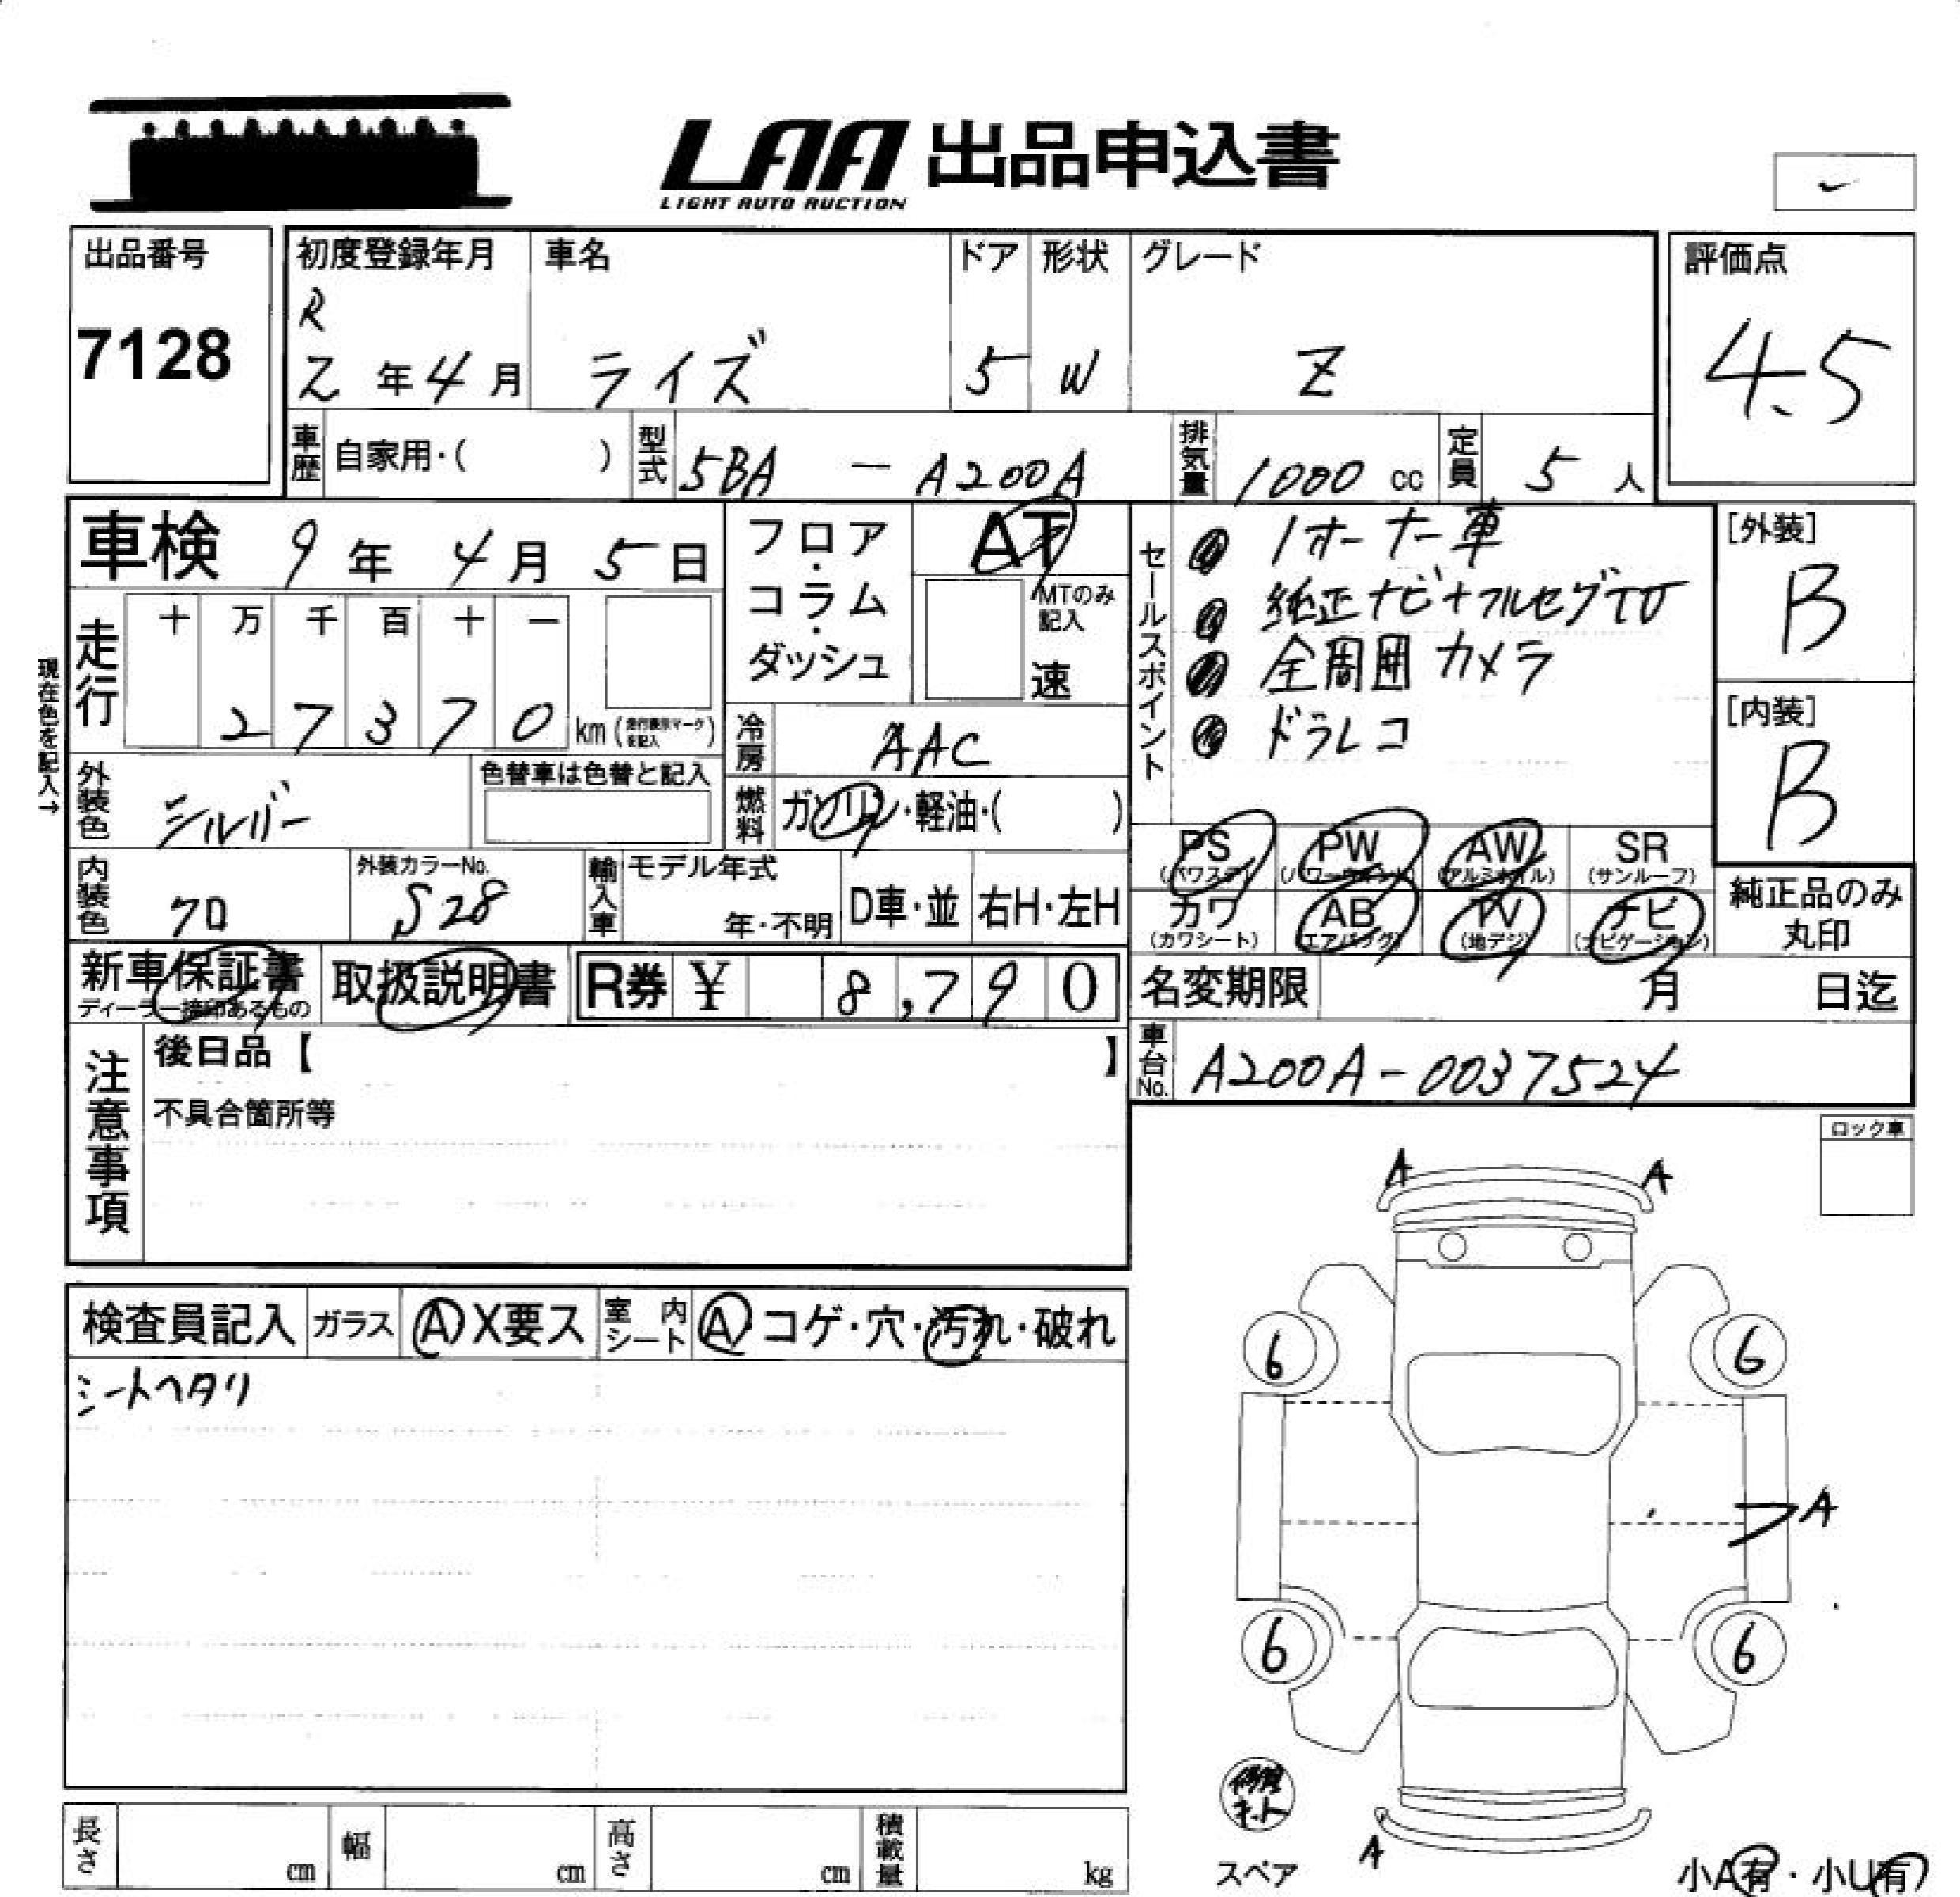 LAA 出品申込書
LIGHT AUTO AUCTION
出品番号
7128
初度登録年月
R
2 年 4 月
車名
ライズ
ドア
5
形状
W
グレード
Z
評価点
4.5
車歴 自家用・( )
型式 5BA - A200A
排気量 1000 cc
定員 5 人
車検 9 年 4 月 5 日
フロア・コラム・ダッシュ
AT
MTのみ記入
速
セールスポイント
1オーナー車
純正ナビ+フルセグTV
全周囲カメラ
ドラレコ
[外装]
B
[内装]
B
現在色を記入→
走行
十 万 千 百 十 一
2 7 3 7 0 km (走行表示マークを記入)
冷房 AAC
燃料 ガソリン・軽油・( )
外装色 シルバー
色替車は色替と記入
内装色 クロ
外装カラーNo.
S28
輸入車
モデル年式
年・不明
D車・並
右H・左H
PS
(パワステ)
PW
(パワーウインド)
AW
(アルミホイル)
SR
(サンルーフ)
カワ
(カワシート)
AB
(エアバッグ)
TV
(地デジ)
ナビ
(ナビゲーション)
純正品のみ
丸印
新車保証書
ディーラー捺印あるもの
取扱説明書
R券 ¥ 8,790
名変期限 月 日迄
車台No. A200A-0037524
注意事項
後日品【 】
不具合箇所等
ロック車
検査員記入
ガラス A X要ス
室内シート A コゲ・穴・汚れ・破れ
シートヘタリ
A A
6 6
A
6 6
修理キット
スペア
A
小A有・小U有
長さ cm
幅 cm
高さ cm
積載量 kg